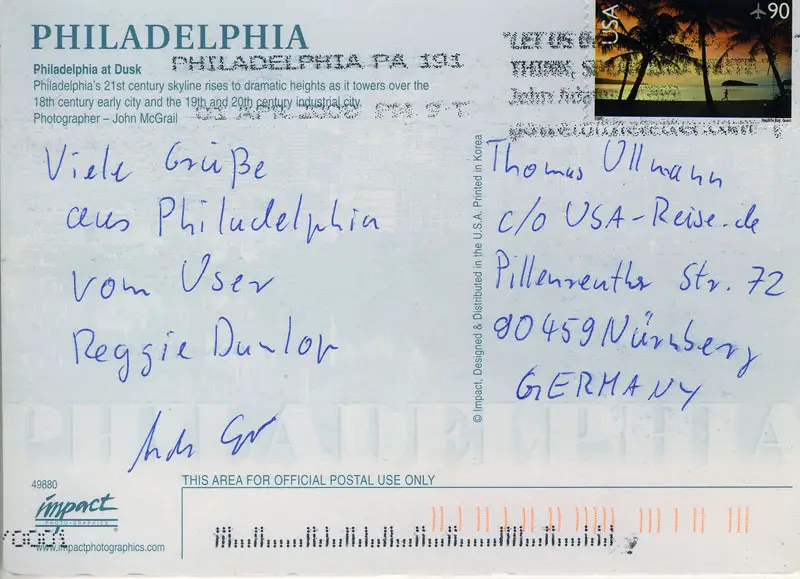 PHILADELPHIA
Philadelphia at Dusk
Philadelphia's 21st century skyline rises to dramatic heights as it towers over the
18th century early city and the 19th and 20th century industrial city.
Photographer – John McGrail
PHILADELPHIA PA 191
01 APR PM 9 T
"LET US D
THINK, S
John Ada
USA
90
Viele Grüße
aus Philadelphia
vom User
Reggie Dunlop
Thomas Ullmann
c/o USA-Reise.de
Pillenreuther Str. 72
90459 Nürnberg
GERMANY
© Impact, Designed & Distributed in the U.S.A. Printed in Korea
PHILADELPHIA
49880
impact
PHOTOGRAPHICS
www.impactphotographics.com
THIS AREA FOR OFFICIAL POSTAL USE ONLY